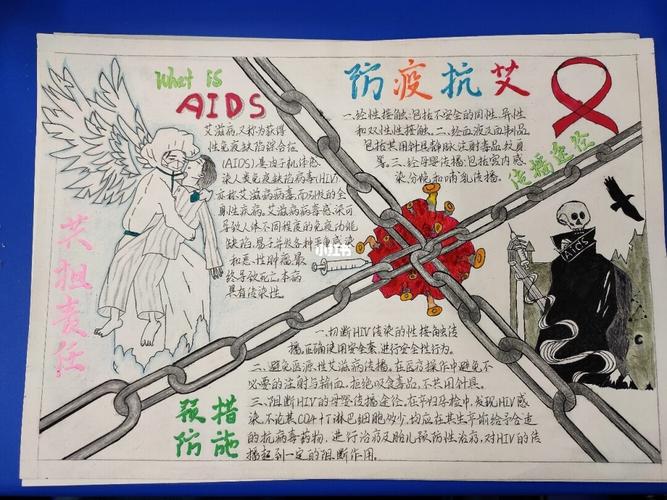 What is
AIDS
艾滋病,又称为获得
性免疫缺陷综合征
(AIDS),是由于机体感
染人类免疫缺陷病毒(HIV)
亦称艾滋病病毒,而引发的全
身性疾病,艾滋病病毒感染可
导致人体不同程度的免疫功能
缺陷,易于并发各种严重感染
和恶性肿瘤,最
终导致死亡,本病
具有传染性。
防疫抗艾
一.经性接触:包括不安全的同性、异性
和双性性接触。二.经血液及血制品
包括共用针具静脉注射毒品
三.经母婴传播:包括宫内感
染、分娩和哺乳传播。
传播途径
共担责任
小红书
AIDS
一.切断HIV传染的性接触传
播。正确使用安全套,进行安全性行为。
二.避免医源性艾滋病传播,在医疗操作中避免不
必要的注射与输血,拒绝吸食毒品,不共用针具。
三.阻断HIV的母婴传播途径,在孕妇孕检中,发现HIV感
染,不论其CD4+T淋巴细胞多少,均应在其生产前给予合适
的抗病毒药物,进行治疗及胎儿预防性治疗,对HIV的传
播起到一定的阻断作用。
预措
防施